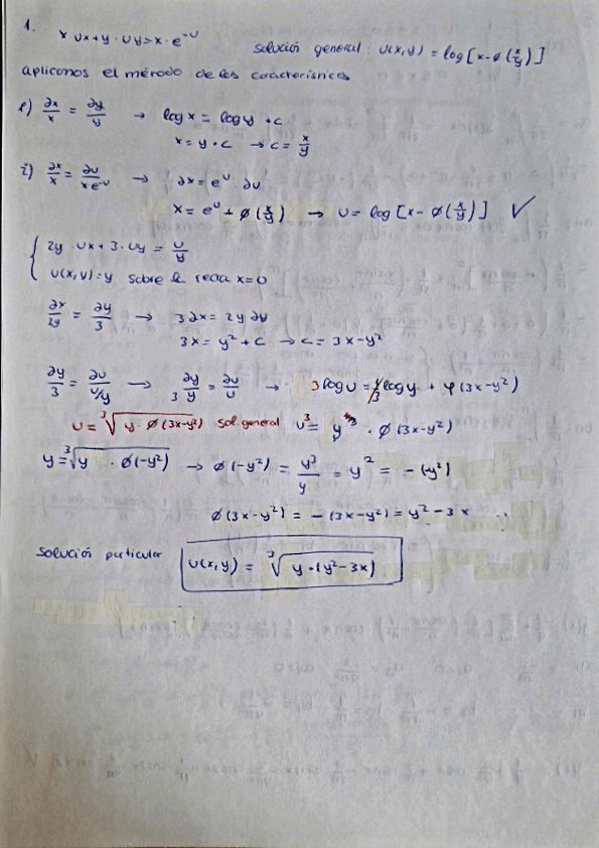 1.
x·ux+y·uy=x·e^-u
solución general: u(x,y) = log[x-ø(x/y)]
aplicamos el método de las características
1) ∂x/x = ∂y/y → log x = log y + c
x = y·c → c = x/y
2) ∂x/x = ∂u/xe^-u → ∂x = e^u ∂u
x = e^u + ø(x/y) → u = log[x-ø(x/y)] ✓
{ 2y·ux + 3·uy = u/y
u(x,y)=y sobre la recta x=0
∂x/2y = ∂y/3 → 3∂x = 2y∂y
3x = y²+c → c = 3x-y²
∂y/3 = ∂u/u/y → ∂y/3y = ∂u/u → 3 log u = log y + φ(3x-y²)
u = ³√y·ø(3x-y²) sol. general u³ = y · ø(3x-y²)
y = ³√y · ø(-y²) → ø(-y²) = y³/y = y² = -(-y²)
ø(3x-y²) = -(3x-y²) = y²-3x
solución particular u(x,y) = ³√y·(y²-3x)